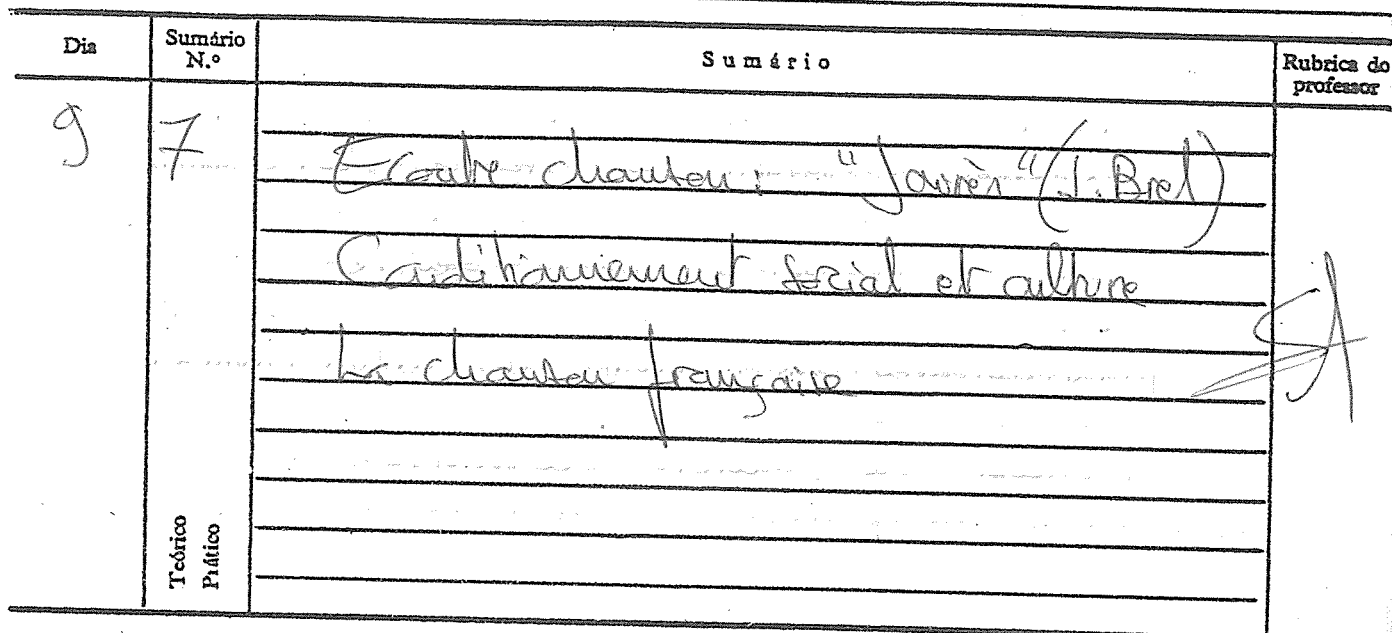 Dia Sumário N.º Sumário Rubrica do professor
9 7
Ecoute chanson : "Jaurès" (J. Brel)
Conditionnement social et culture
La chanson française
Teórico
Prático